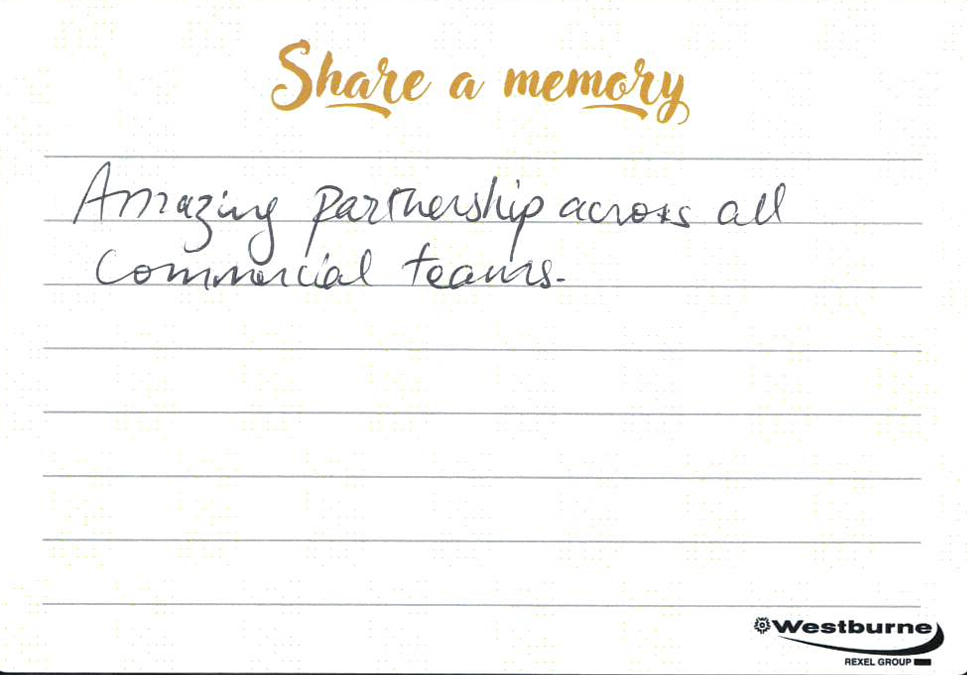 Share a memory
Amazing partnership across all
Commercial teams.
Westburne
REXEL GROUP